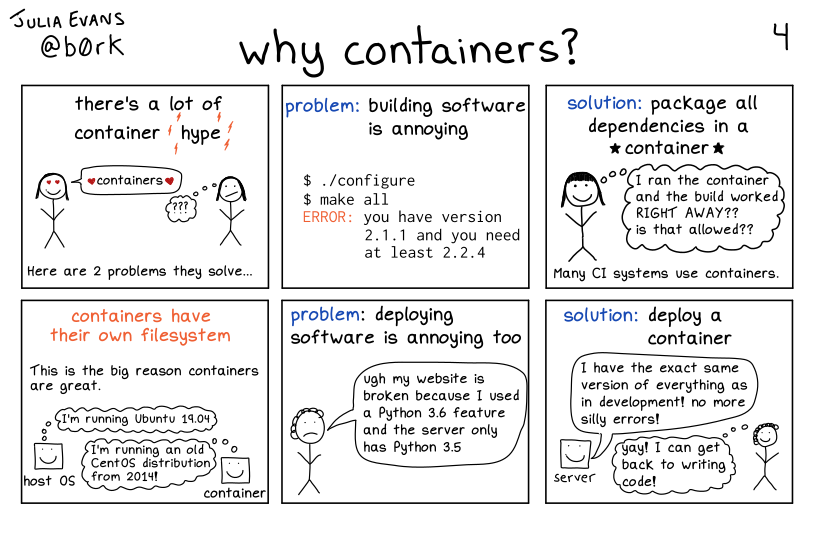 JULIA EVANS
@b0rk
why containers?
4
there's a lot of
container hype
♥containers♥
???
Here are 2 problems they solve...
problem: building software
is annoying
$ ./configure
$ make all
ERROR: you have version
2.1.1 and you need
at least 2.2.4
solution: package all
dependencies in a
★container★
I ran the container
and the build worked
RIGHT AWAY??
is that allowed??
Many CI systems use containers.
containers have
their own filesystem
This is the big reason containers
are great.
I'm running Ubuntu 19.04
host OS
I'm running an old
CentOS distribution
from 2014!
container
problem: deploying
software is annoying too
ugh my website is
broken because I used
a Python 3.6 feature
and the server only
has Python 3.5
solution: deploy a
container
I have the exact same
version of everything as
in development! no more
silly errors!
server
yay! I can get
back to writing
code!